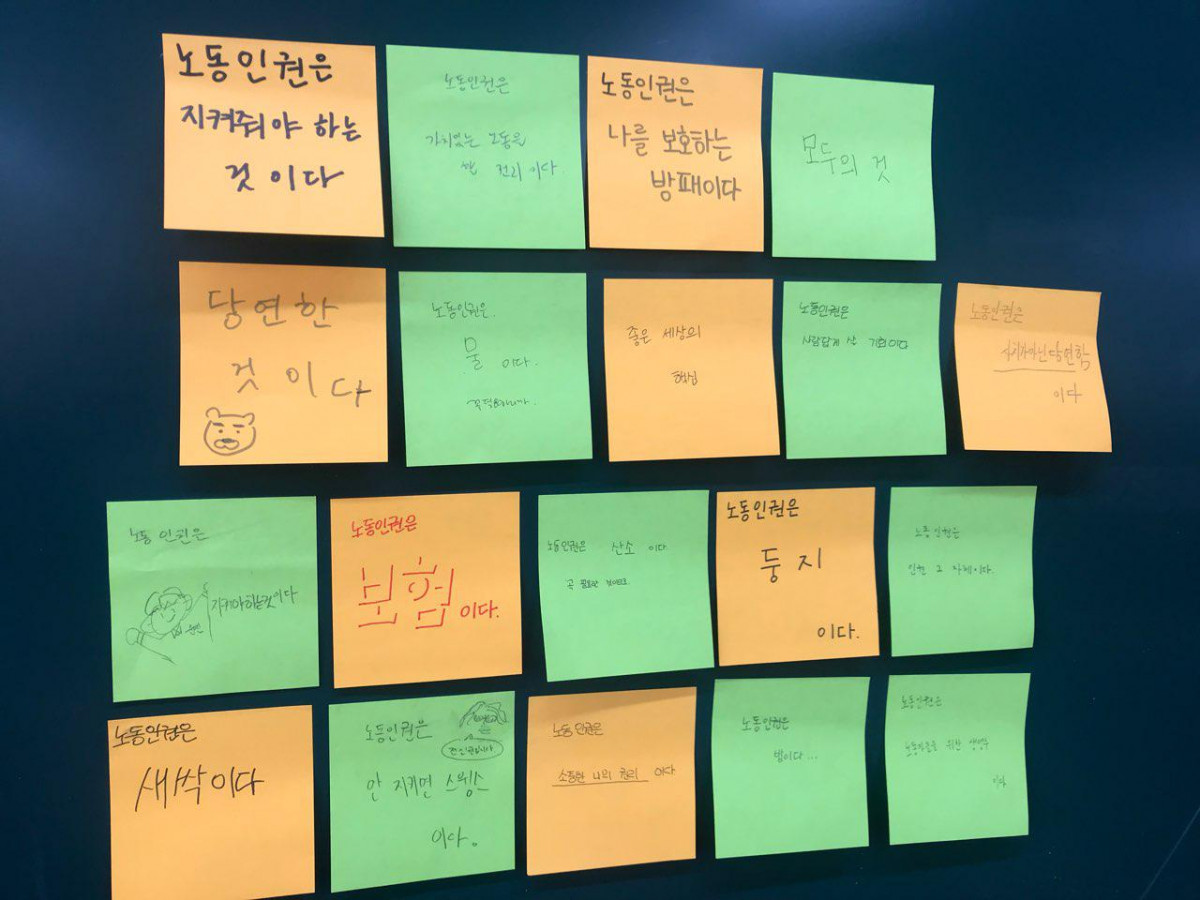 노동인권은
지켜줘야 하는
것이다
노동인권은
가치있는 노동을
권리 이다
노동인권은
나를 보호하는
방패이다
모두의 것
당연한
것이다
노동인권은
물 이다.
꼭 필요하니까.
좋은 세상의
핵심
노동인권은
사람답게 살 기회이다
노동인권은
당연함
이다
노동 인권은
지켜야하는것이다
노동인권은
보험 이다.
노동인권은 산소 이다
꼭 필요한
노동인권은
둥지
이다.
노동인권은
인권 그 자체이다.
노동인권은
새싹이다
노동인권은
안 지키면 스윙스
이다.
노동 인권은
소중한 나의 권리 이다
노동인권은
법이다...
노동인권은
노동자들을 위한
이다